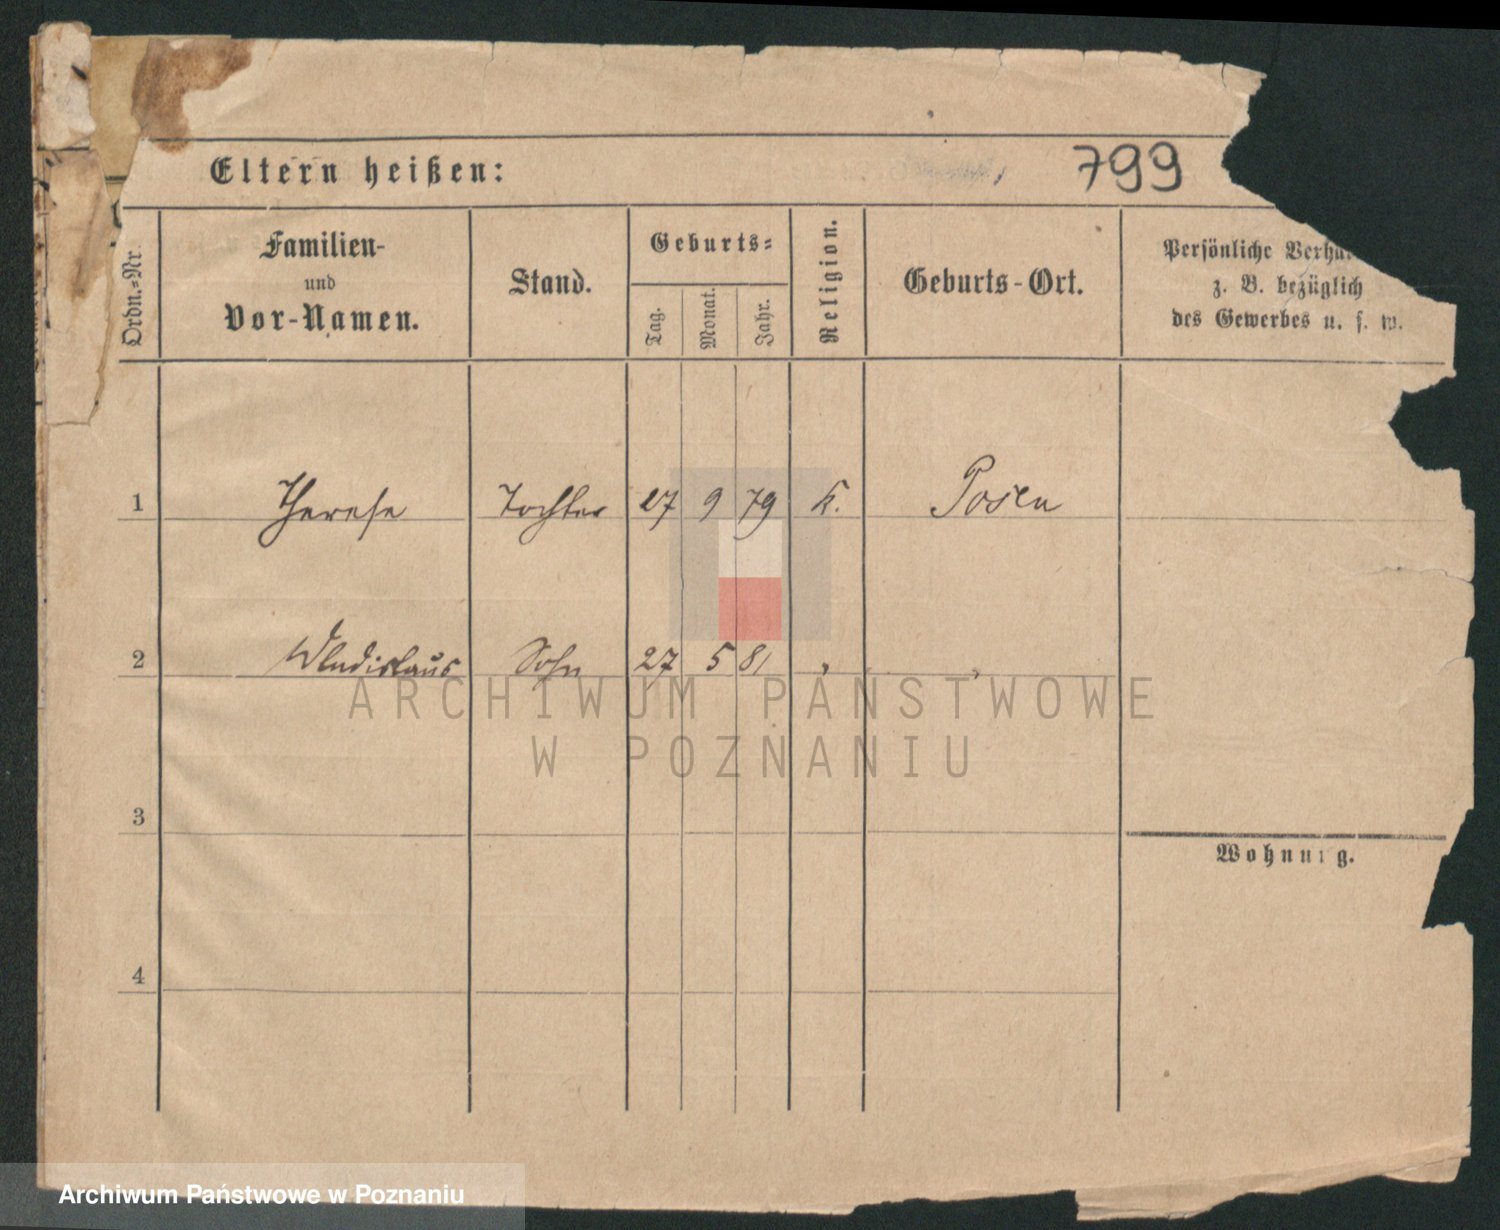 Eltern heißen:
799
Ordn.=Nr.
Familien-
und
Vor-Namen.
Stand.
Geburts=
Tag.
Monat.
Jahr.
Religion.
Geburts-Ort.
Persönliche Verhä
z. B. bezüglich
des Gewerbes u. s. w.
1 Therese Tochter 27 9 79 k. Posen
2 Wladislaus Sohn 27 5 81 " "
ARCHIWUM PAŃSTWOWE
W POZNANIU
3
Wohnung.
4
Archiwum Państwowe w Poznaniu